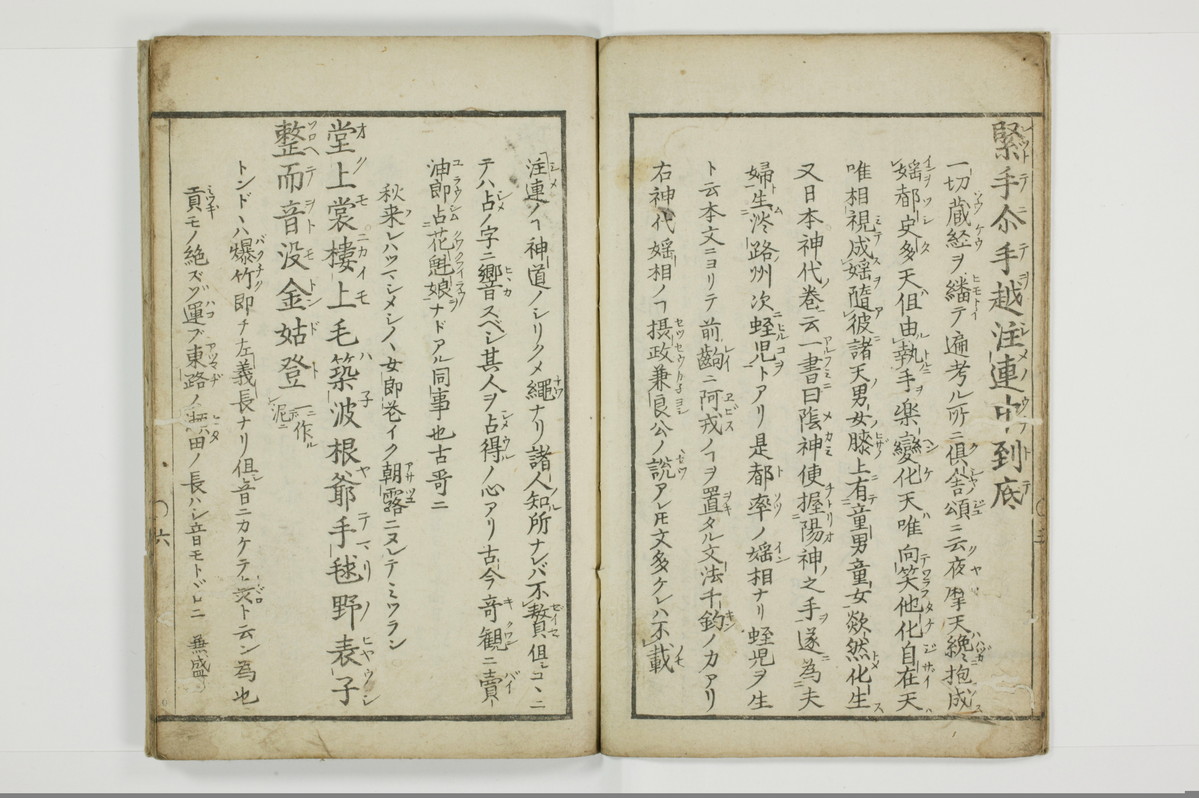 緊手尒手越注連中到底
一切蔵経ヲ繙テ遍考ル所ニ倶舎頌ニ云夜摩天纔抱成
婬都史多天但由執手ヲ楽變化天唯向笑他化自在天
唯相視成婬隨彼諸天男女膝上有童男童女欻然化生
又日本神代巻ニ云一書曰陰神便握陽神之手遂為夫
婦生淡路州次蛭児トアリ是都率ノ婬相ナリ蛭児ヲ生
ト云本文ニヨリテ前齣ニ阿戎ノヿヲ置タル文法千鈞ノカアリ
右神代婬相ノヿ摂政兼良公ノ説アレ𪜈文多ケレハ不載
注連ノヿ神道ノシリクメ縄ナリ諸人知所ナレバ不贅但コヽニ
テハ占ノ字ニ響スベシ其人ヲ占得ノ心アリ古今奇観ニ賣
油郎占花魁娘ナドアル同事也古哥ニ
秋来レハツマシメシノヽ女郎花イク朝露ニヌレテミツラン
堂上モ裳樓上毛築波根爺手毬野表子
整而音没金姑登 一ニ作ル泥ニ
トンドハ爆竹即チ左義長ナリ但音ニカケテト云ン為也
貢モノ絶ズ運ブ東路ノ田ノ長ハシ音モトドロニ 兼盛
六